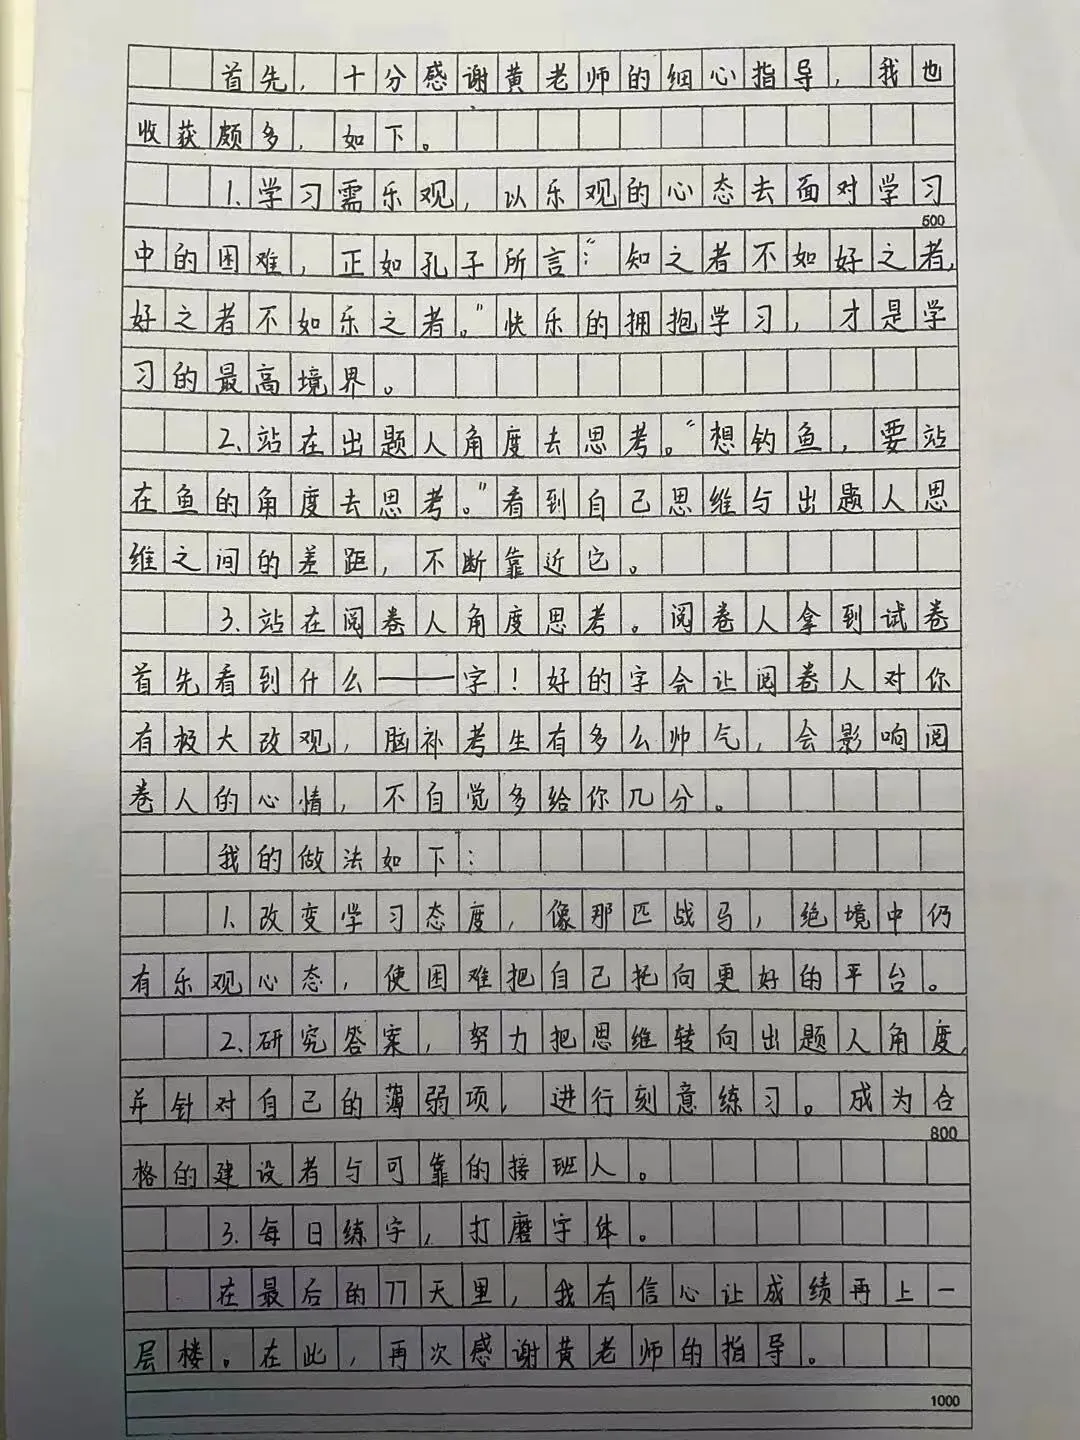 首先，十分感谢黄老师的细心指导，我也
收获颇多，如下。
1.学习需乐观，以乐观的心态去面对学习
600
中的困难，正如孔子所言："知之者不如好之者，
好之者不如乐之者。"快乐的拥抱学习，才是学
习的最高境界。
2.站在出题人角度去思考。"想钓鱼，要站
在鱼的角度去思考。"看到自己思维与出题人思
维之间的差距，不断靠近它。
3.站在阅卷人角度思考。阅卷人拿到试卷
首先看到什么——字！好的字会让阅卷人对你
有极大改观，脑补考生有多么帅气，会影响阅
卷人的心情，不自觉多给你几分。
我的做法如下：
1.改变学习态度，像那匹战马，绝境中仍
有乐观心态，使困难把自己托向更好的平台。
2.研究答案，努力把思维转向出题人角度，
并针对自己的薄弱项，进行刻意练习。成为合
800
格的建设者与可靠的接班人。
3.每日练字，打磨字体。
在最后的77天里，我有信心让成绩再上一
层楼。在此，再次感谢黄老师的指导。
1000